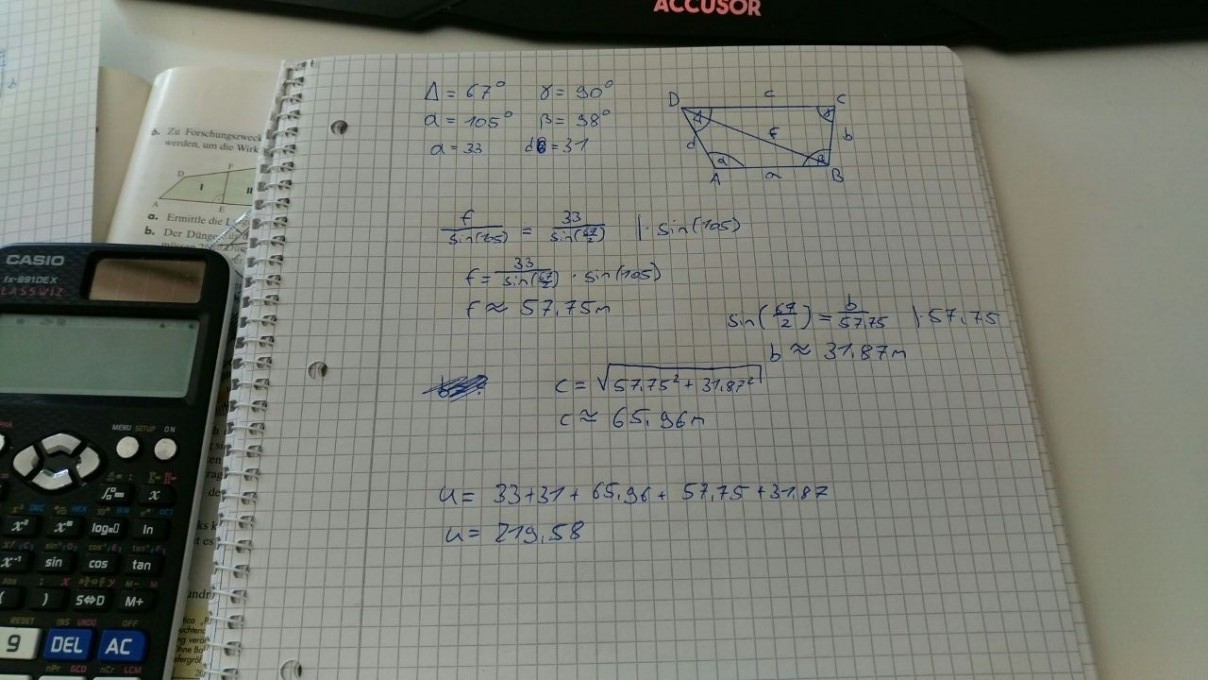 ACCUSOR
Δ = 67° γ = 90°
α = 105° β = 98°
a = 33 d = 31
D c C
d f b
A a B
f/sin(105) = 33/sin(67/2) |· sin(105)
f = 33/sin(67/2) · sin(105)
f ≈ 57,75m
sin(67/2) = b/57,75 |·57,75
b ≈ 31,87m
c = √57,75² + 31,87²
c ≈ 65,96m
u = 33+31+65,96+57,75+31,87
u = 219,58
Zu Forschungszweck
werden, um die Wirk
D F
I II
A E
a. Ermittle die L
b. Der Dünge
CASIO
fx-991DEX
CLASSWIZ
MENU SETUP ON
x
x² log ln
x⁻¹ sin cos tan
( ) S⇔D M+
9 DEL AC